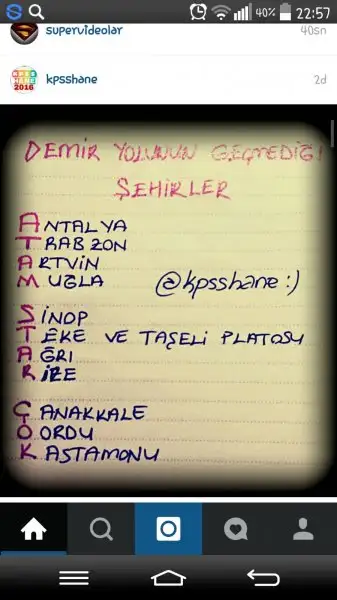 40% 22:57
supervideolar 40sn
KPSS HANE 2016
kpsshane 2d
DEMİR YOLUNUN GEÇMEDİĞİ
ŞEHİRLER
ANTALYA
TRABZON
ARTVİN
MUĞLA @kpsshane :)
SİNOP
TEKE VE TAŞELİ PLATOSU
AĞRI
RİZE
ÇANAKKALE
OORDU
KASTAMONU